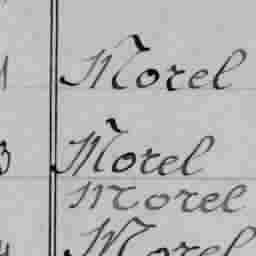 1 Morel
3 Morel
Morel
Morel